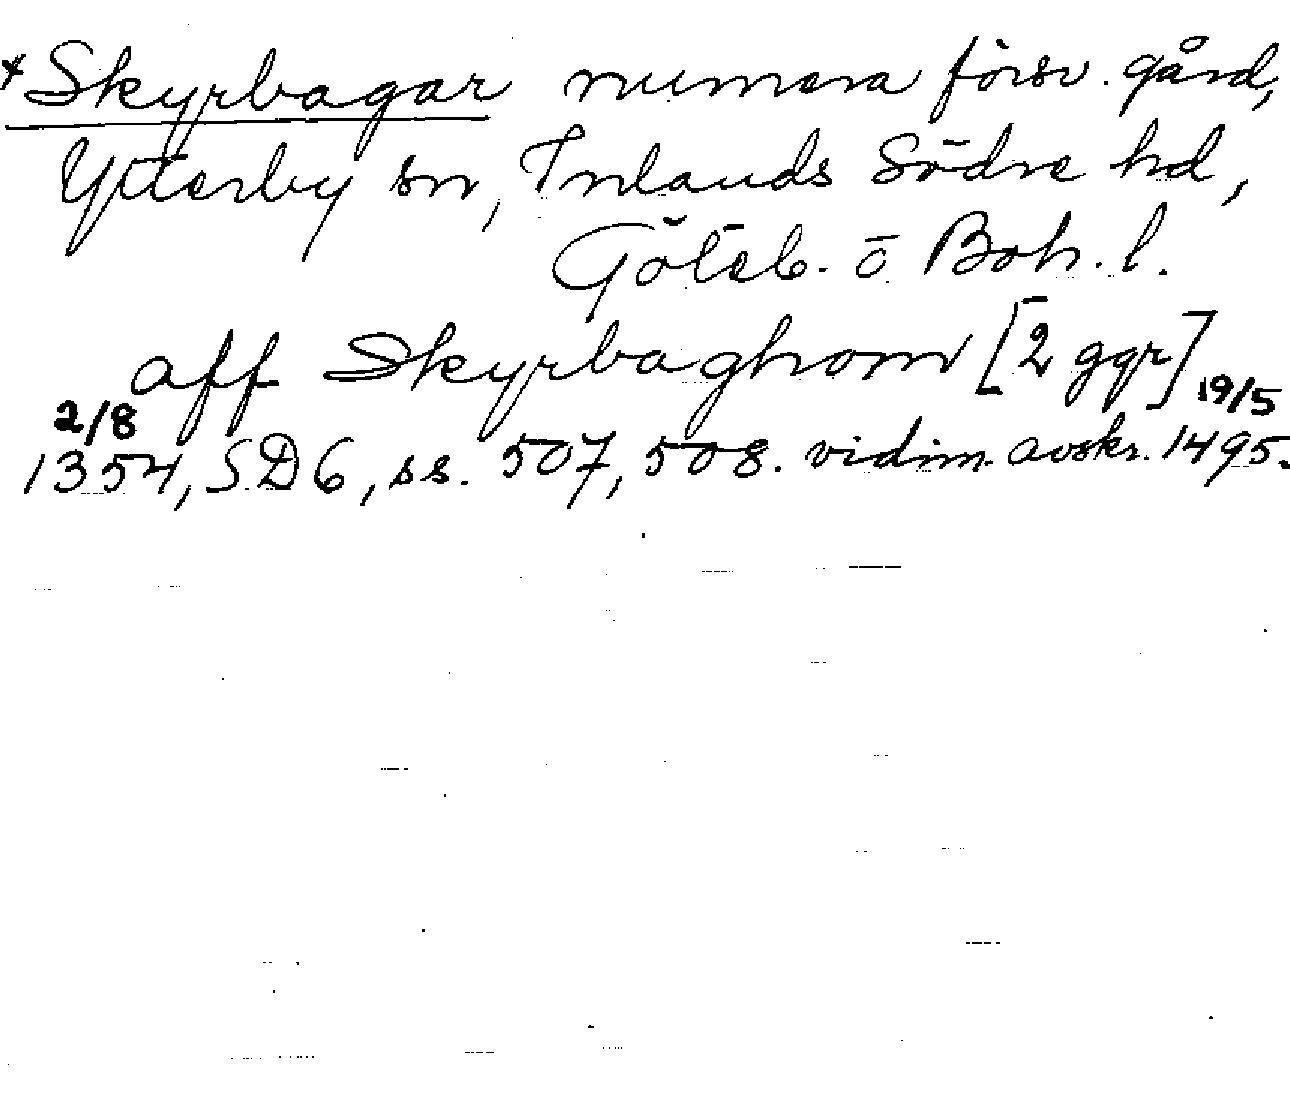 *Skyrbagar numera försv. gård,
Ytterby sn, Inlands Södre hd,
Göteb. o Boh. l.
aff Skyrbaghom [2 ggr]
2/8 1354, SD 6, ss. 507, 508. vidim. avskr. 19/5 1495.